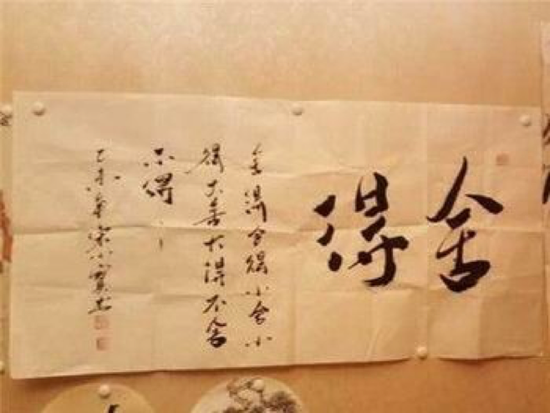 舍得
舍得舍得小舍小
得大舍大得不舍
不得
乙未年宋小寶书